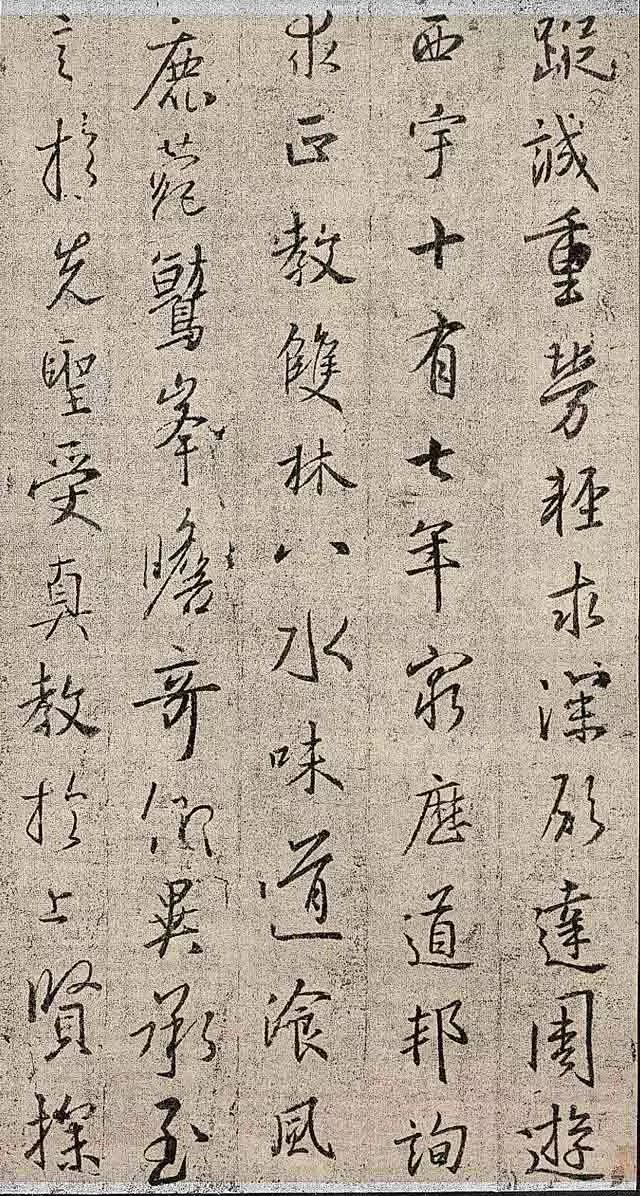 蹤誠重勞輕求深願達周遊
西宇十有七年窮歷道邦詢
求正教雙林八水味道飡風
鹿菀鷲峯瞻奇仰異承至
言於先聖受真教於上賢探